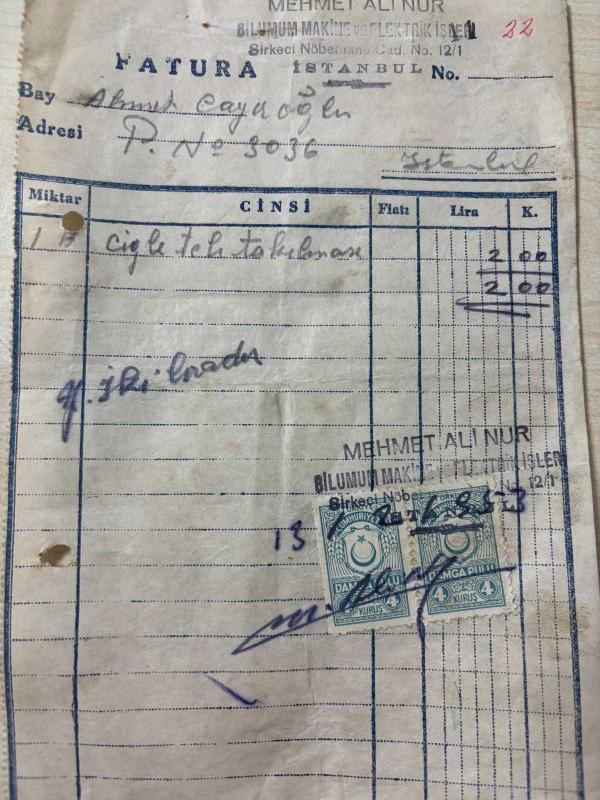 MEHMET ALİ NUR
BİLUMUM MAKİNE ve ELEKTRİK İŞLERİ
22
Sirkeci Nöbethane Cad. No. 12/1
FATURA İSTANBUL No.
Bay Ahmet
Adresi P. No 3036
İstanbul
Miktar CİNSİ Fiatı Lira K.
1 tek 2 00
2 00
Y. İki liradır
MEHMET ALİ NUR
BİLUMUM MAKİNE ve ELEKTRİK İŞLERİ
Sirkeci Nöbe No. 12/1
İST L
13 1953
CUMHURİYETİ
TÜRKİYE
DAMGA PULU DAMGA PULU
4 4 4
KURUŞ KURUŞ